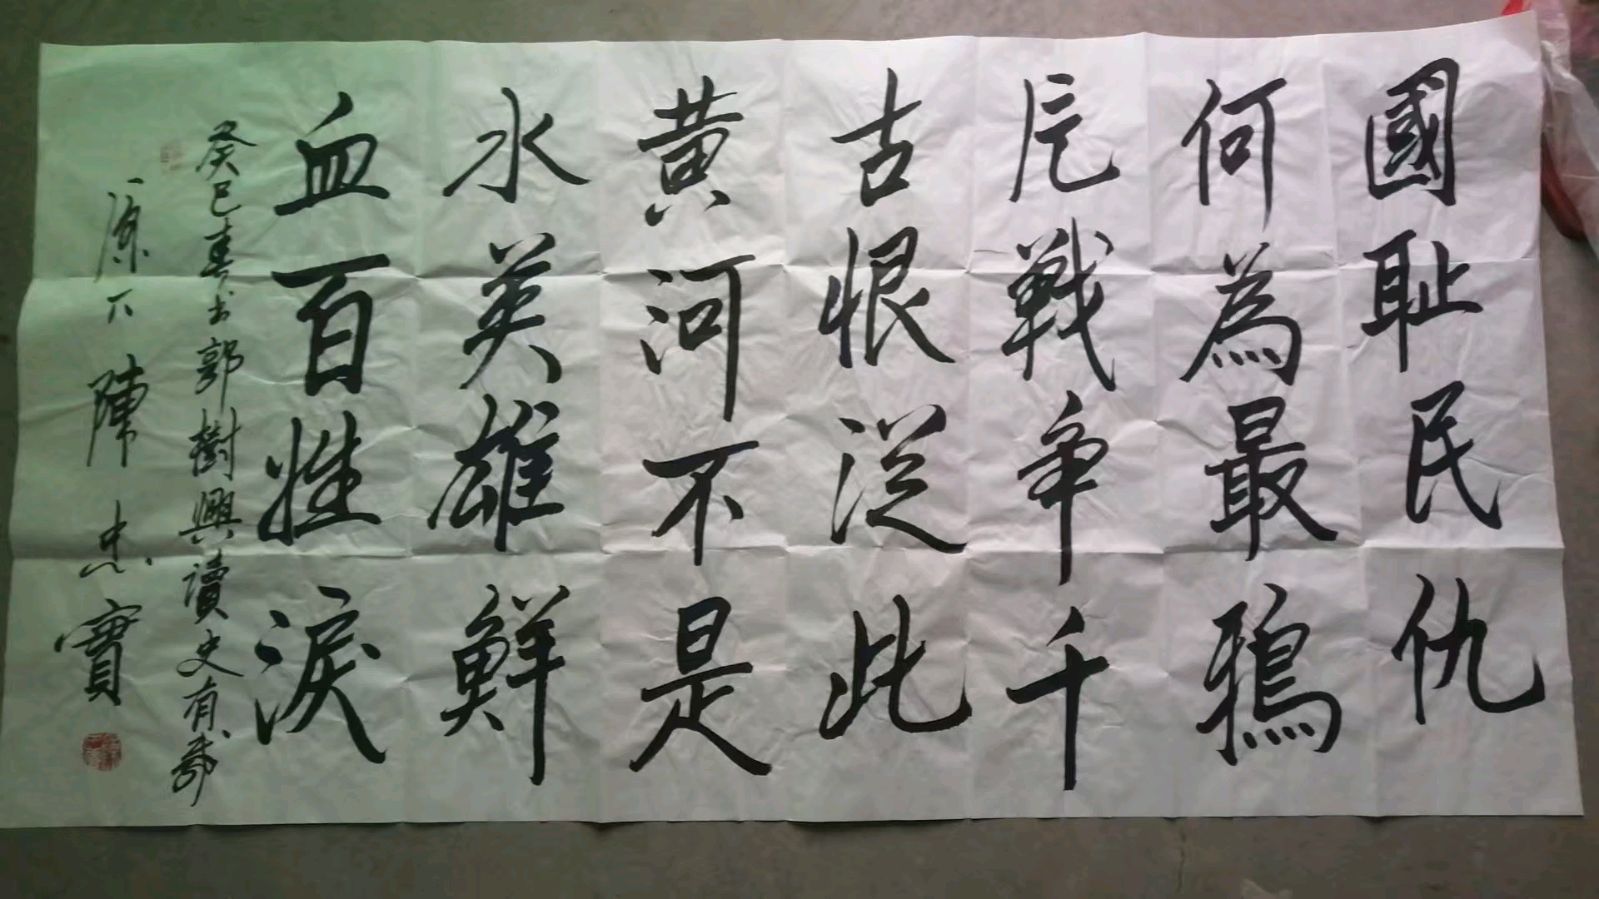 國耻民仇
何為最鴉
片戰争千
古恨從此
黄河不是
水英雄鮮
血百姓淚
癸巳春书郭樹興讀史有感
原下陳忠實